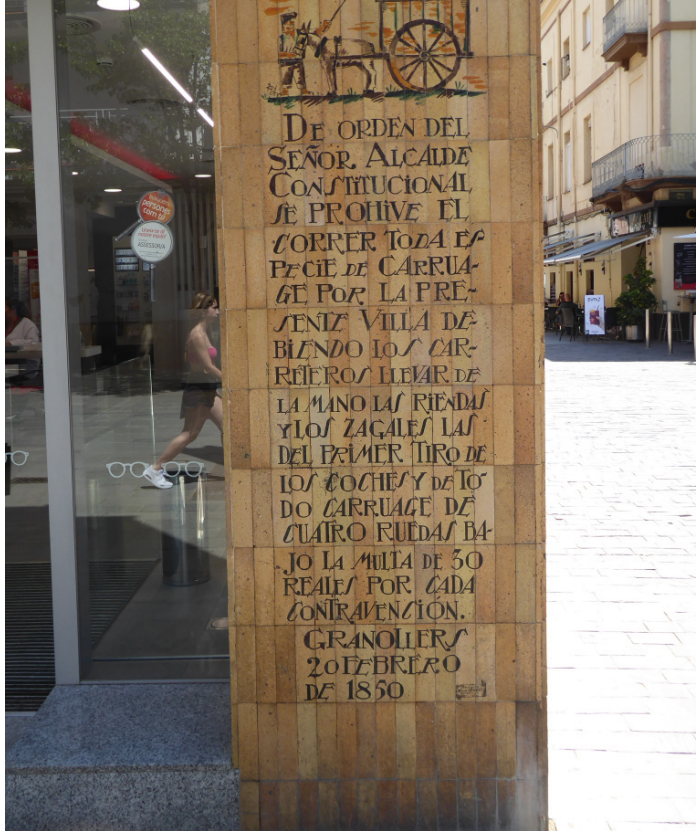 DE ORDEN DEL
SEÑOR ALCALDE
CONSTITUCIONAL
SE PROHIVE EL
CORRER TODA ES-
PECIE DE CARRUA-
GE POR LA PRE-
SENTE VILLA DE-
BIENDO LOS CAR-
RETEROS LLEVAR DE
LA MANO LAS RIENDAS
Y LOS ZAGALES LAS
DEL PRIMER TIRO DE
LOS COCHES Y DE TO-
DO CARRUAGE DE
CUATRO RUEDAS BA-
JO LA MULTA DE 30
REALES POR CADA
CONTRAVENCIÓN.
GRANOLLERS
20 FEBRERO
DE 1850
persones
com tu